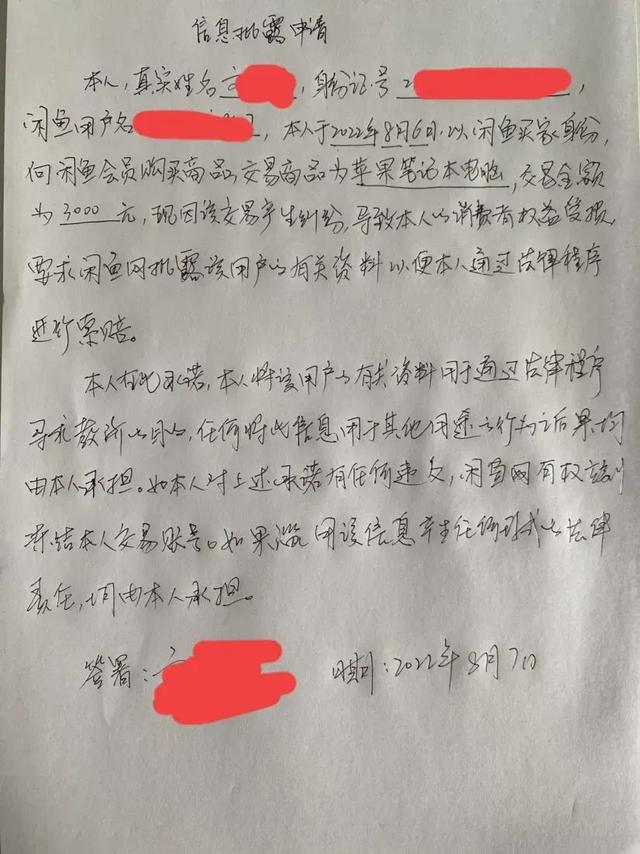 信息批露申请
本人,真实姓名,身份证号2,
闲鱼用户名,本人于2022年8月6日,以闲鱼买家身份,
向闲鱼会员购买商品,交易商品为苹果笔记本电脑,交易金额
为3000元,现因该交易产生纠纷,导致本人的消费者权益受损,
要求闲鱼网批露该用户的有关资料以便本人通过法律程序
进行索赔。
本人在此承诺,本人将该用户的有关资料用于通过法律程序
寻求救济的目的,任何将此信息用于其他用途之行为之后果均
由本人承担。如本人对上述承诺有任何违反,闲鱼网有权立刻
冻结本人交易账号。如果滥用该信息产生任何形式的法律
责任,均由本人承担。
签署: 日期:2022年8月7日